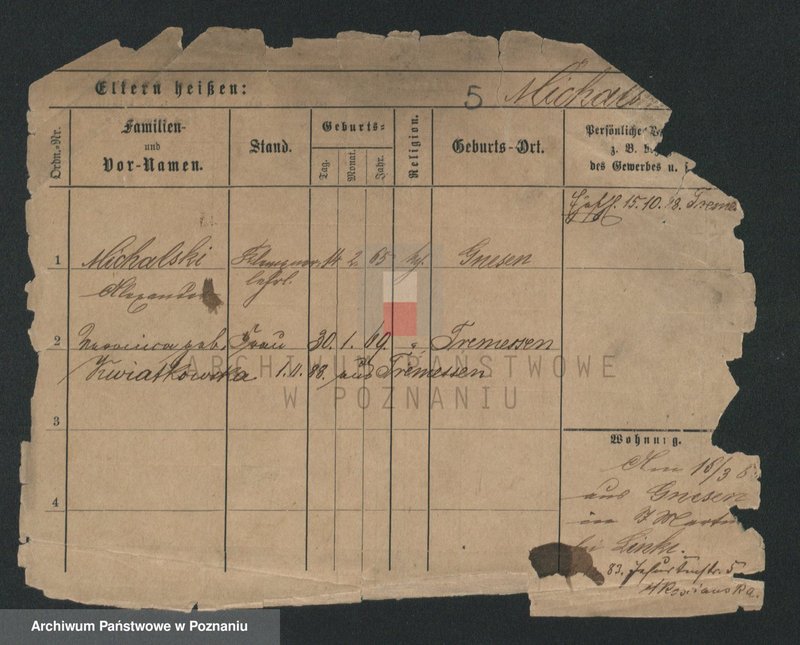 Eltern heißen:
5 Michals
Ordn.-Nr.
Familien-
und
Vor-Namen.
Stand.
Geburts-
Tag.
Monat.
Jahr.
Religion.
Geburts-Ort.
Persönliche
z. B.
des Gewerbes u.
15.10.88. Treme
1
Michalski
14. 2. 65
Gnesen
Alexander
lehrl.
2
geb. Frau 30. 1. 69 " Tremessen
Kwiatkowska 1.11.88. aus Tremessen
ARCHIWUM PAŃSTWOWE
W POZNANIU
3
4
Wohnung.
Am 16/3 8
aus Gnesen
in
bei
83. 5
Archiwum Państwowe w Poznaniu